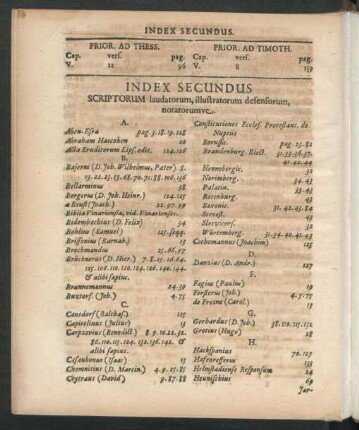 INDEX SECUNDUS.
PRIOR. AD THESS.
Cap. vers. pag.
V. 22 96
PRIOR. AD TIMOTH.
Cap. vers. pag.
V. 8 139
INDEX SECUNDUS
SCRIPTORUM laudatorum, illustratorum defensorum,
notatorumve.
A.
Aben-Esra pag. 3.18.19.128
Abraham Haccohen 12
Acta Eruditorum Lips. cit. 124.126
B.
Bajerus (D. Joh. Wilhelmus, Pater) 8.
13.22.23.55.68.70.71.88.106.136
Bellarminus 38
Bergerus (D. Joh. Heinr.) 124.125
a Beust (Joach.) 22.97.29
Biblia Vinariensia, vid. Vinarienses.
Bidembachius (D. Felix) 34
Bohlius (Samuel) 125. seqq.
Brissonius (Barnab.) 13
Brochmandus 25.66.97
Brücknerus (D. Hier.) 7.8.25.10.64.
105.106.110.120.124.126.142.144.
& alibi sæpius.
Brunnemannus 24.30
Buxtorf. (Joh.) 4.75
C.
Cansdorf (Balthas.) 115
Capitolinus (Julius) 13
Carpzovius (Benedict.) 8.9.10.22.32.
86.110.115.124.132.136.142. &
alibi sæpius.
Casaubonus (Isaac) 13
Chemnitius (D. Martin.) 4.9.25.85
Chytræus (David) 9.87.88
Constitutiones Ecclef. Protestant. de
Nuptiis
Borussic. pag. 25.82
Brandenburg. Elect. 31.33.36.37.
41.42.44
Hennebergic. 32
Norimberg. 34.43
Palatin. 33.43
Rotenburg. 43
Saxonic. 31.42.43.84
Servest. 43
Slesvicens. 32
Würtemberg. 31.34.40.41.43
Cothemannus (Joachim) 115
D.
Danzius (D. Andr.) 127
F.
Fagius (Paulus) 19
Forsterus (Joh.) 4.5.77
de Freine (Carol.) 13
G.
Gerhardus (D. Joh.) 38.110.115.132
Grotius (Hugo) 28
H.
Hackspanius 70.127
Hafenrefferus 13
Helmstadiense Responsum 24
Heunischius 69
Jar-